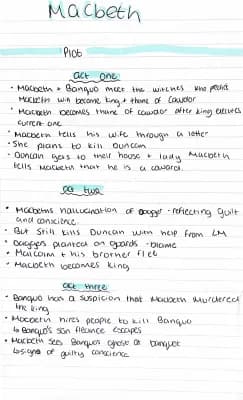 Macbeth
Plot
act one
• Macbeth + Banquo meet the witches who predict
Macbeth will become king + thane of cawdor
• Macbeth becomes thane of cawdor after king executes
current one
• Macbeth tells his wife through a letter
• She plans to kill Duncan
• Duncan goes to their house + lady Macbeth
tells Macbeth that he is a coward.
act two
• Macbeths hallucination of dagger - reflecting guilt
and conscience.
• But still kills Duncan with help from LM
• Daggers planted on guards - blame
• Malcolm + his brother flee
• Macbeth becomes king
act three
• Banquo has a suspicion that Macbeth murdered
the king
• Macbeth hires people to kill Banquo
↳ Banquo's son fleance escapes
• Macbeth sees Banquos ghost at banquet
↳ signs of guilty conscience